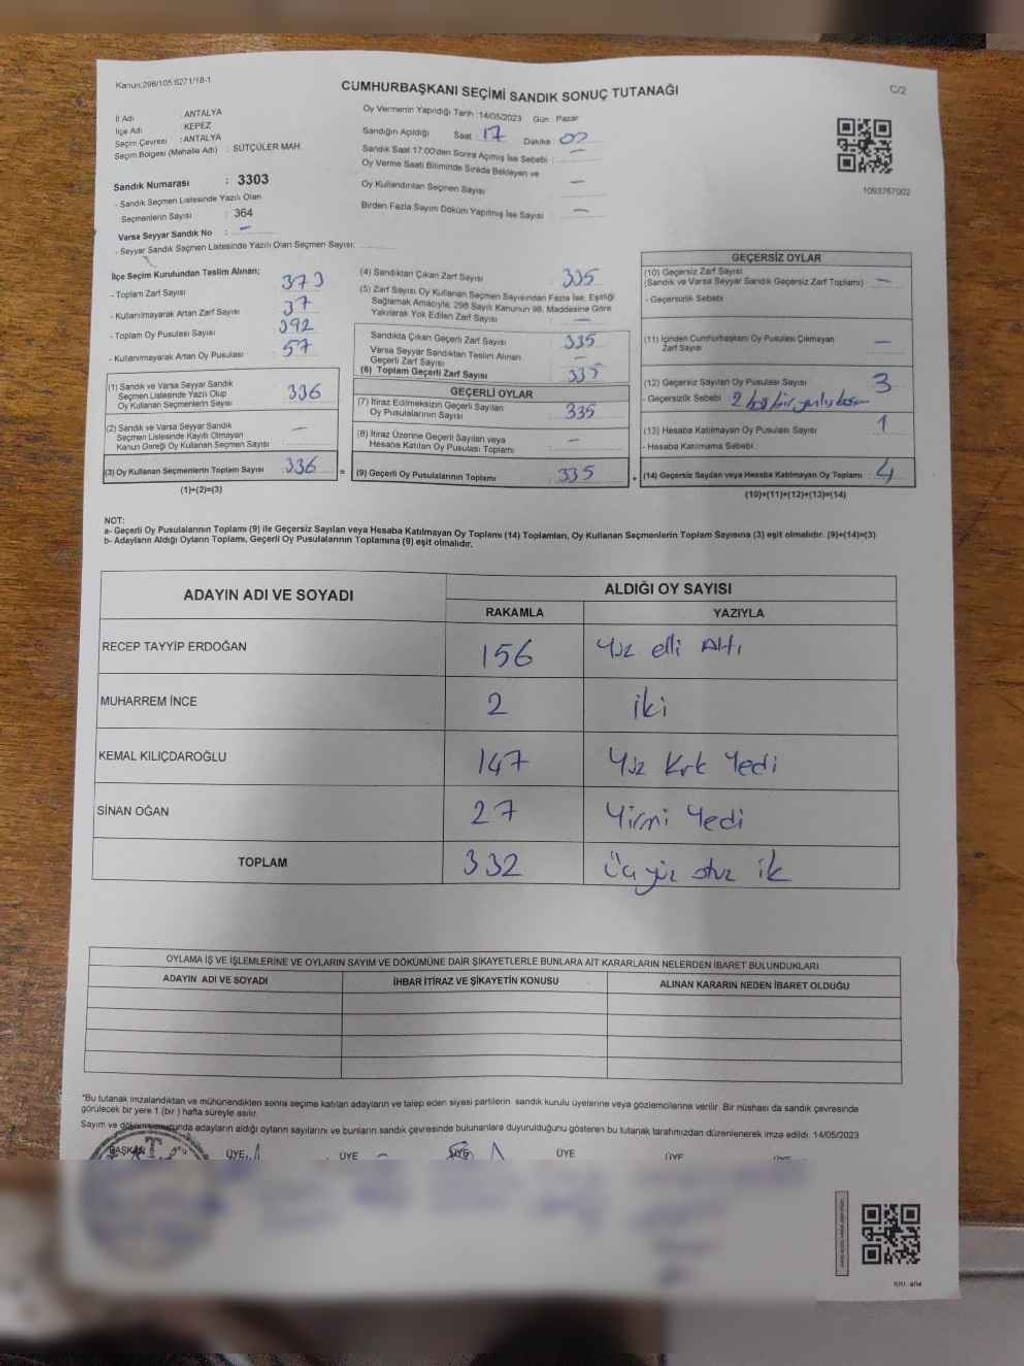 Kanun:298/105 6271/18-1
CUMHURBAŞKANI SEÇİMİ SANDIK SONUÇ TUTANAĞI
C/2
İl Adı : ANTALYA
İlçe Adı : KEPEZ
Seçim Çevresi : ANTALYA
Seçim Bölgesi (Mahalle Adı) : SÜTÇÜLER MAH.
Oy Vermenin Yapıldığı Tarih :14/05/2023 Gün : Pazar
Sandığın Açıldığı Saat 17 Dakika 02
Sandık Saat 17:00'den Sonra Açılmış İse Sebebi : —
Oy Verme Saati Bitiminde Sırada Bekleyen ve
Oy Kullandırılan Seçmen Sayısı —
Birden Fazla Sayım Döküm Yapılmış İse Sayısı —
1093767002
Sandık Numarası : 3303
- Sandık Seçmen Listesinde Yazılı Olan
Seçmenlerin Sayısı : 364
Varsa Seyyar Sandık No : —
- Seyyar Sandık Seçmen Listesinde Yazılı Olan Seçmen Sayısı:
İlçe Seçim Kurulundan Teslim Alınan;
- Toplam Zarf Sayısı 373
- Kullanılmayarak Artan Zarf Sayısı 37
- Toplam Oy Pusulası Sayısı 392
- Kullanılmayarak Artan Oy Pusulası 57
(1) Sandık ve Varsa Seyyar Sandık
Seçmen Listesinde Yazılı Olup
Oy Kullanan Seçmenlerin Sayısı 336
(2) Sandık ve Varsa Seyyar Sandık
Seçmen Listesinde Kayıtlı Olmayan
Kanun Gereği Oy Kullanan Seçmen Sayısı —
(3) Oy Kullanan Seçmenlerin Toplam Sayısı 336 =
(1)+(2)=(3)
(4) Sandıktan Çıkan Zarf Sayısı 335
(5) Zarf Sayısı Oy Kullanan Seçmen Sayısından Fazla İse, Eşitliği
Sağlamak Amacıyla, 298 Sayılı Kanunun 98. Maddesine Göre
Yakılarak Yok Edilen Zarf Sayısı —
Sandıkta Çıkan Geçerli Zarf Sayısı 335
Varsa Seyyar Sandıktan Teslim Alınan
Geçerli Zarf Sayısı —
(6) Toplam Geçerli Zarf Sayısı 335
GEÇERLİ OYLAR
(7) İtiraz Edilmeksizin Geçerli Sayılan
Oy Pusulalarının Sayısı 335
(8) İtiraz Üzerine Geçerli Sayılan veya
Hesaba Katılan Oy Pusulası Toplamı —
(9) Geçerli Oy Pusulalarının Toplamı 335 +
GEÇERSİZ OYLAR
(10) Geçersiz Zarf Sayısı
(Sandık ve Varsa Seyyar Sandık Geçersiz Zarf Toplamı) —
- Geçersizlik Sebebi
(11) İçinden Cumhurbaşkanı Oy Pusulası Çıkmayan
Zarf Sayısı —
(12) Geçersiz Sayılan Oy Pusulası Sayısı 3
- Geçersizlik Sebebi 2 boş bir
(13) Hesaba Katılmayan Oy Pusulası Sayısı 1
- Hesaba Katılmama Sebebi
(14) Geçersiz Sayılan veya Hesaba Katılmayan Oy Toplamı 4
(10)+(11)+(12)+(13)=(14)
NOT:
a- Geçerli Oy Pusulalarının Toplamı (9) ile Geçersiz Sayılan veya Hesaba Katılmayan Oy Toplamı (14) Toplamları, Oy Kullanan Seçmenlerin Toplam Sayısına (3) eşit olmalıdır. (9)+(14)=(3)
b- Adayların Aldığı Oyların Toplamı, Geçerli Oy Pusulalarının Toplamına (9) eşit olmalıdır.
ADAYIN ADI VE SOYADI
ALDIĞI OY SAYISI
RAKAMLA YAZIYLA
RECEP TAYYİP ERDOĞAN 156 Yüz elli Altı
MUHARREM İNCE 2 iki
KEMAL KILIÇDAROĞLU 147 Yüz Kırk Yedi
SİNAN OĞAN 27 Yirmi Yedi
TOPLAM 332 Üçyüz otuz ik
OYLAMA İŞ VE İŞLEMLERİNE VE OYLARIN SAYIM VE DÖKÜMÜNE DAİR ŞİKAYETLERLE BUNLARA AİT KARARLARIN NELERDEN İBARET BULUNDUKLARI
ADAYIN ADI VE SOYADI İHBAR İTİRAZ VE ŞİKAYETİN KONUSU ALINAN KARARIN NEDEN İBARET OLDUĞU
*Bu tutanak imzalandıktan ve mühürlendikten sonra seçime katılan adayların ve talep eden siyasi partilerin sandık kurulu üyelerine veya gözlemcilerine verilir. Bir nüshası da sandık çevresinde
görülecek bir yere 1 (bir) hafta süreyle asılır.
Sayım ve dökümü sonunda adayların aldığı oyların sayılarını ve bunların sandık çevresinde bulunanlara duyurulduğunu gösteren bu tutanak tarafımızdan düzenlenerek imza edildi. 14/05/2023
BAŞKAN ÜYE ÜYE ÜYE ÜYE ÜYE